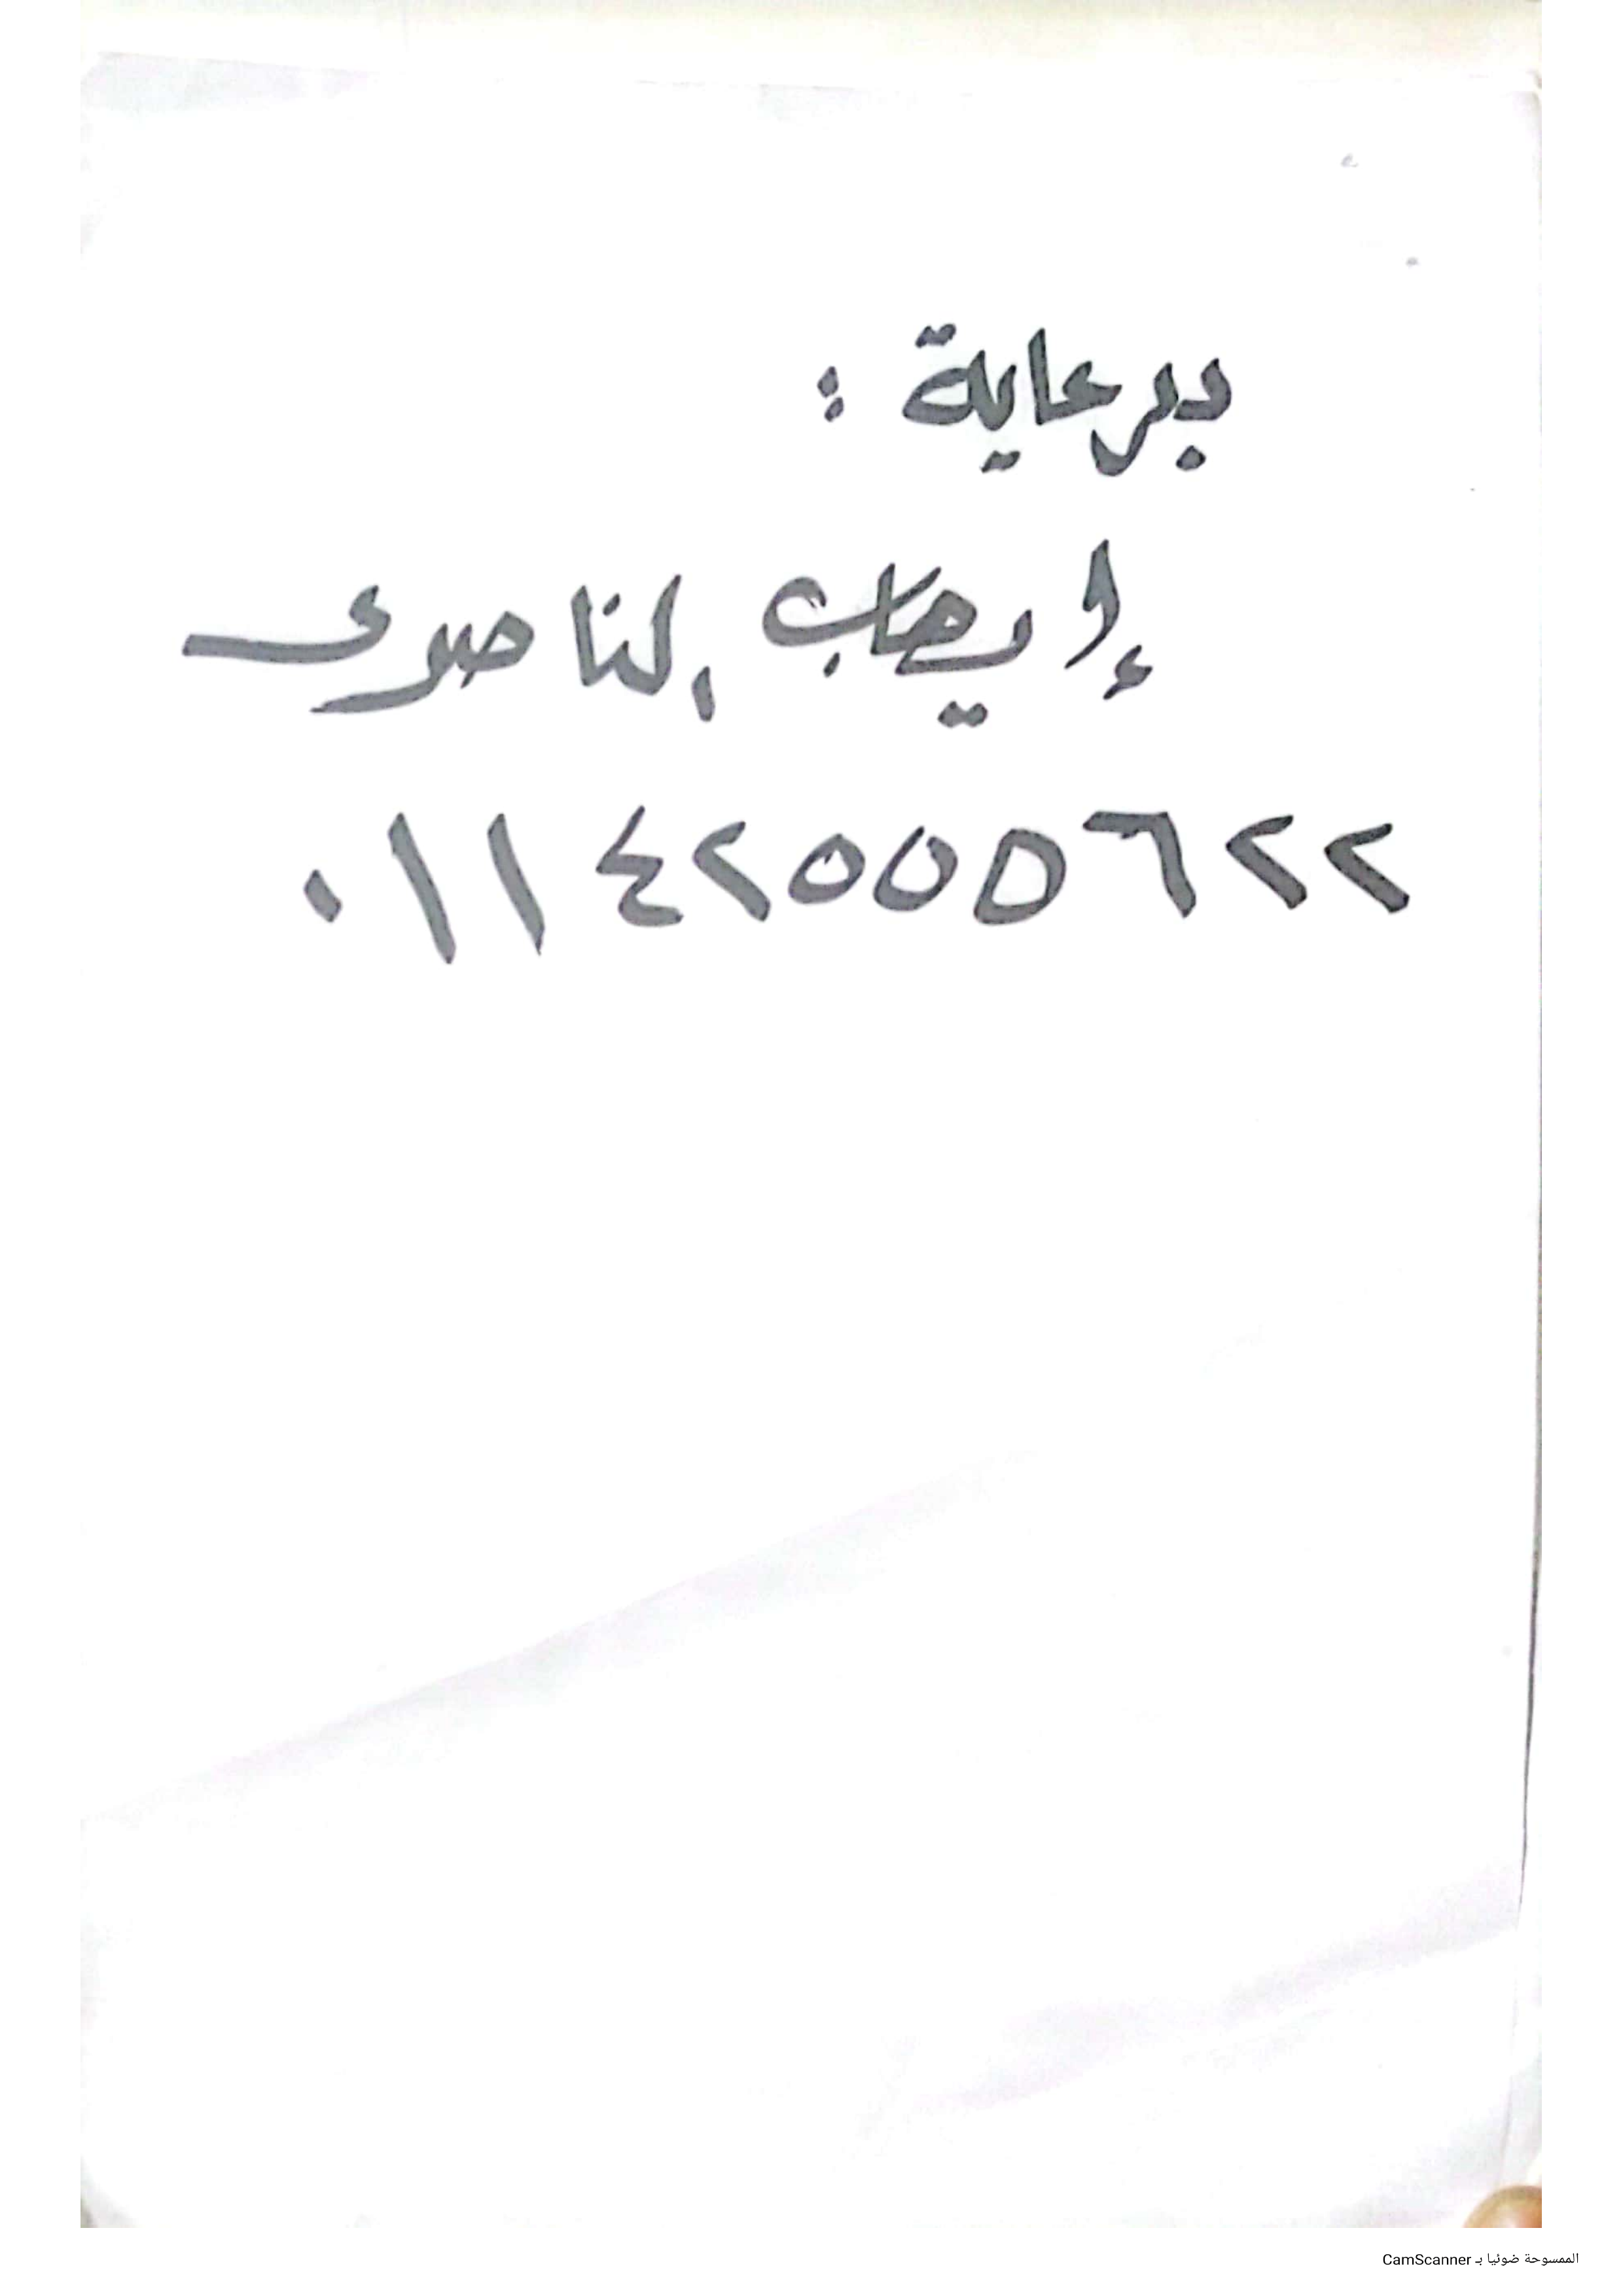 برعاية :
إيهاب الناصرى
٠١١٤٢٥٥٥٦٢٢
الممسوحة ضوئيا بـ CamScanner